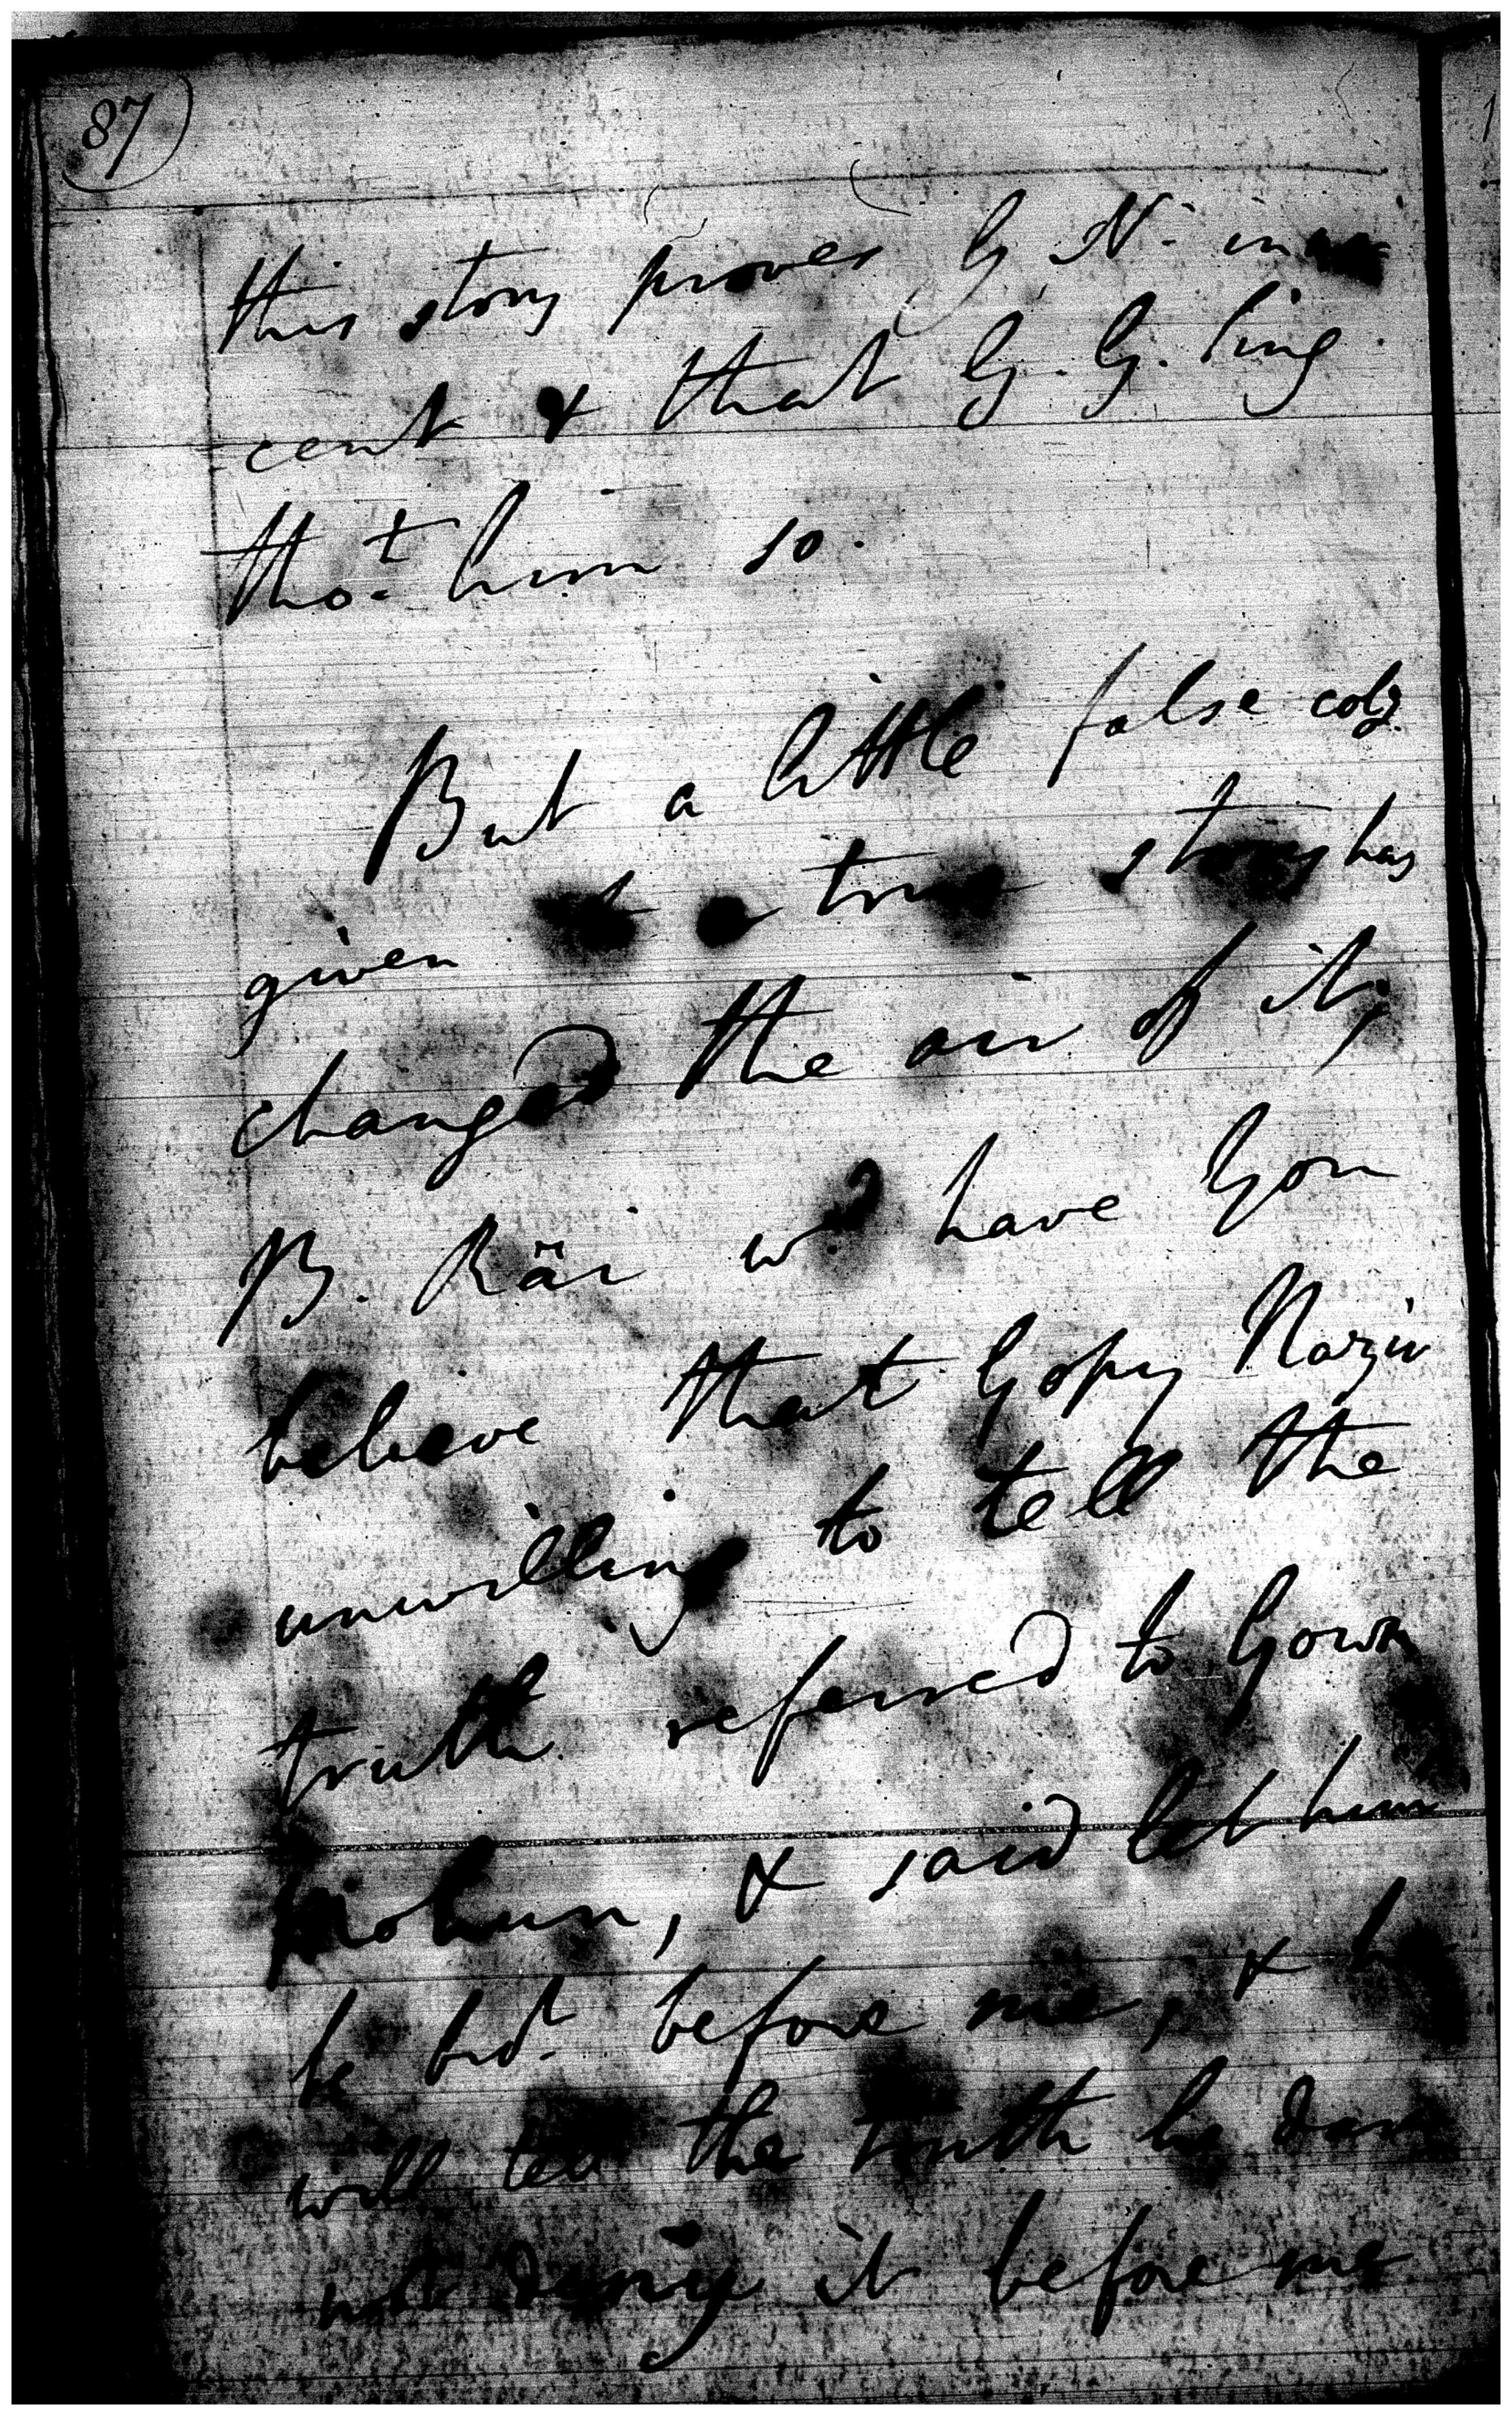 87
this story proves G. N. inno
cent & that G. G. Sing
tho.t him so.
But a little false colg.
given to a true story has
changed the air of it,
B. Räi wd have you
believe that Gopy Nazir
unwilling to tell the
truth referred to Gown
Mohun, & said let him
be brd. before me, & he
will tell the truth he dare
not deny it before me